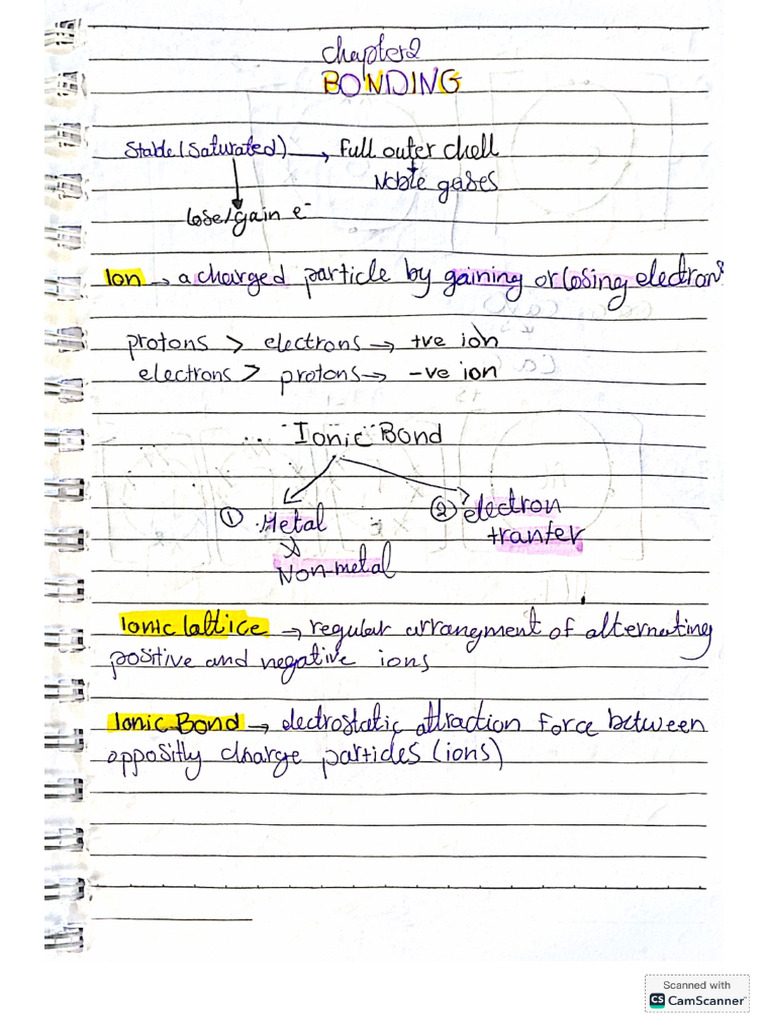 chapter 2
BONDING
Stable (Saturated) → Full outer chell
Noble gases
lose/gain e⁻
Ion → a charged particle by gaining or losing electrons
protons > electrons → +ve ion
electrons > protons → -ve ion
Ionic Bond
① Metal
② electron
tranfer
Non-metal
Ionic lattice → regular arrangment of alternating
positive and negative ions
Ionic Bond → electrostatic attraction force between
oppositly charge particles (ions)
Scanned with
CS CamScanner